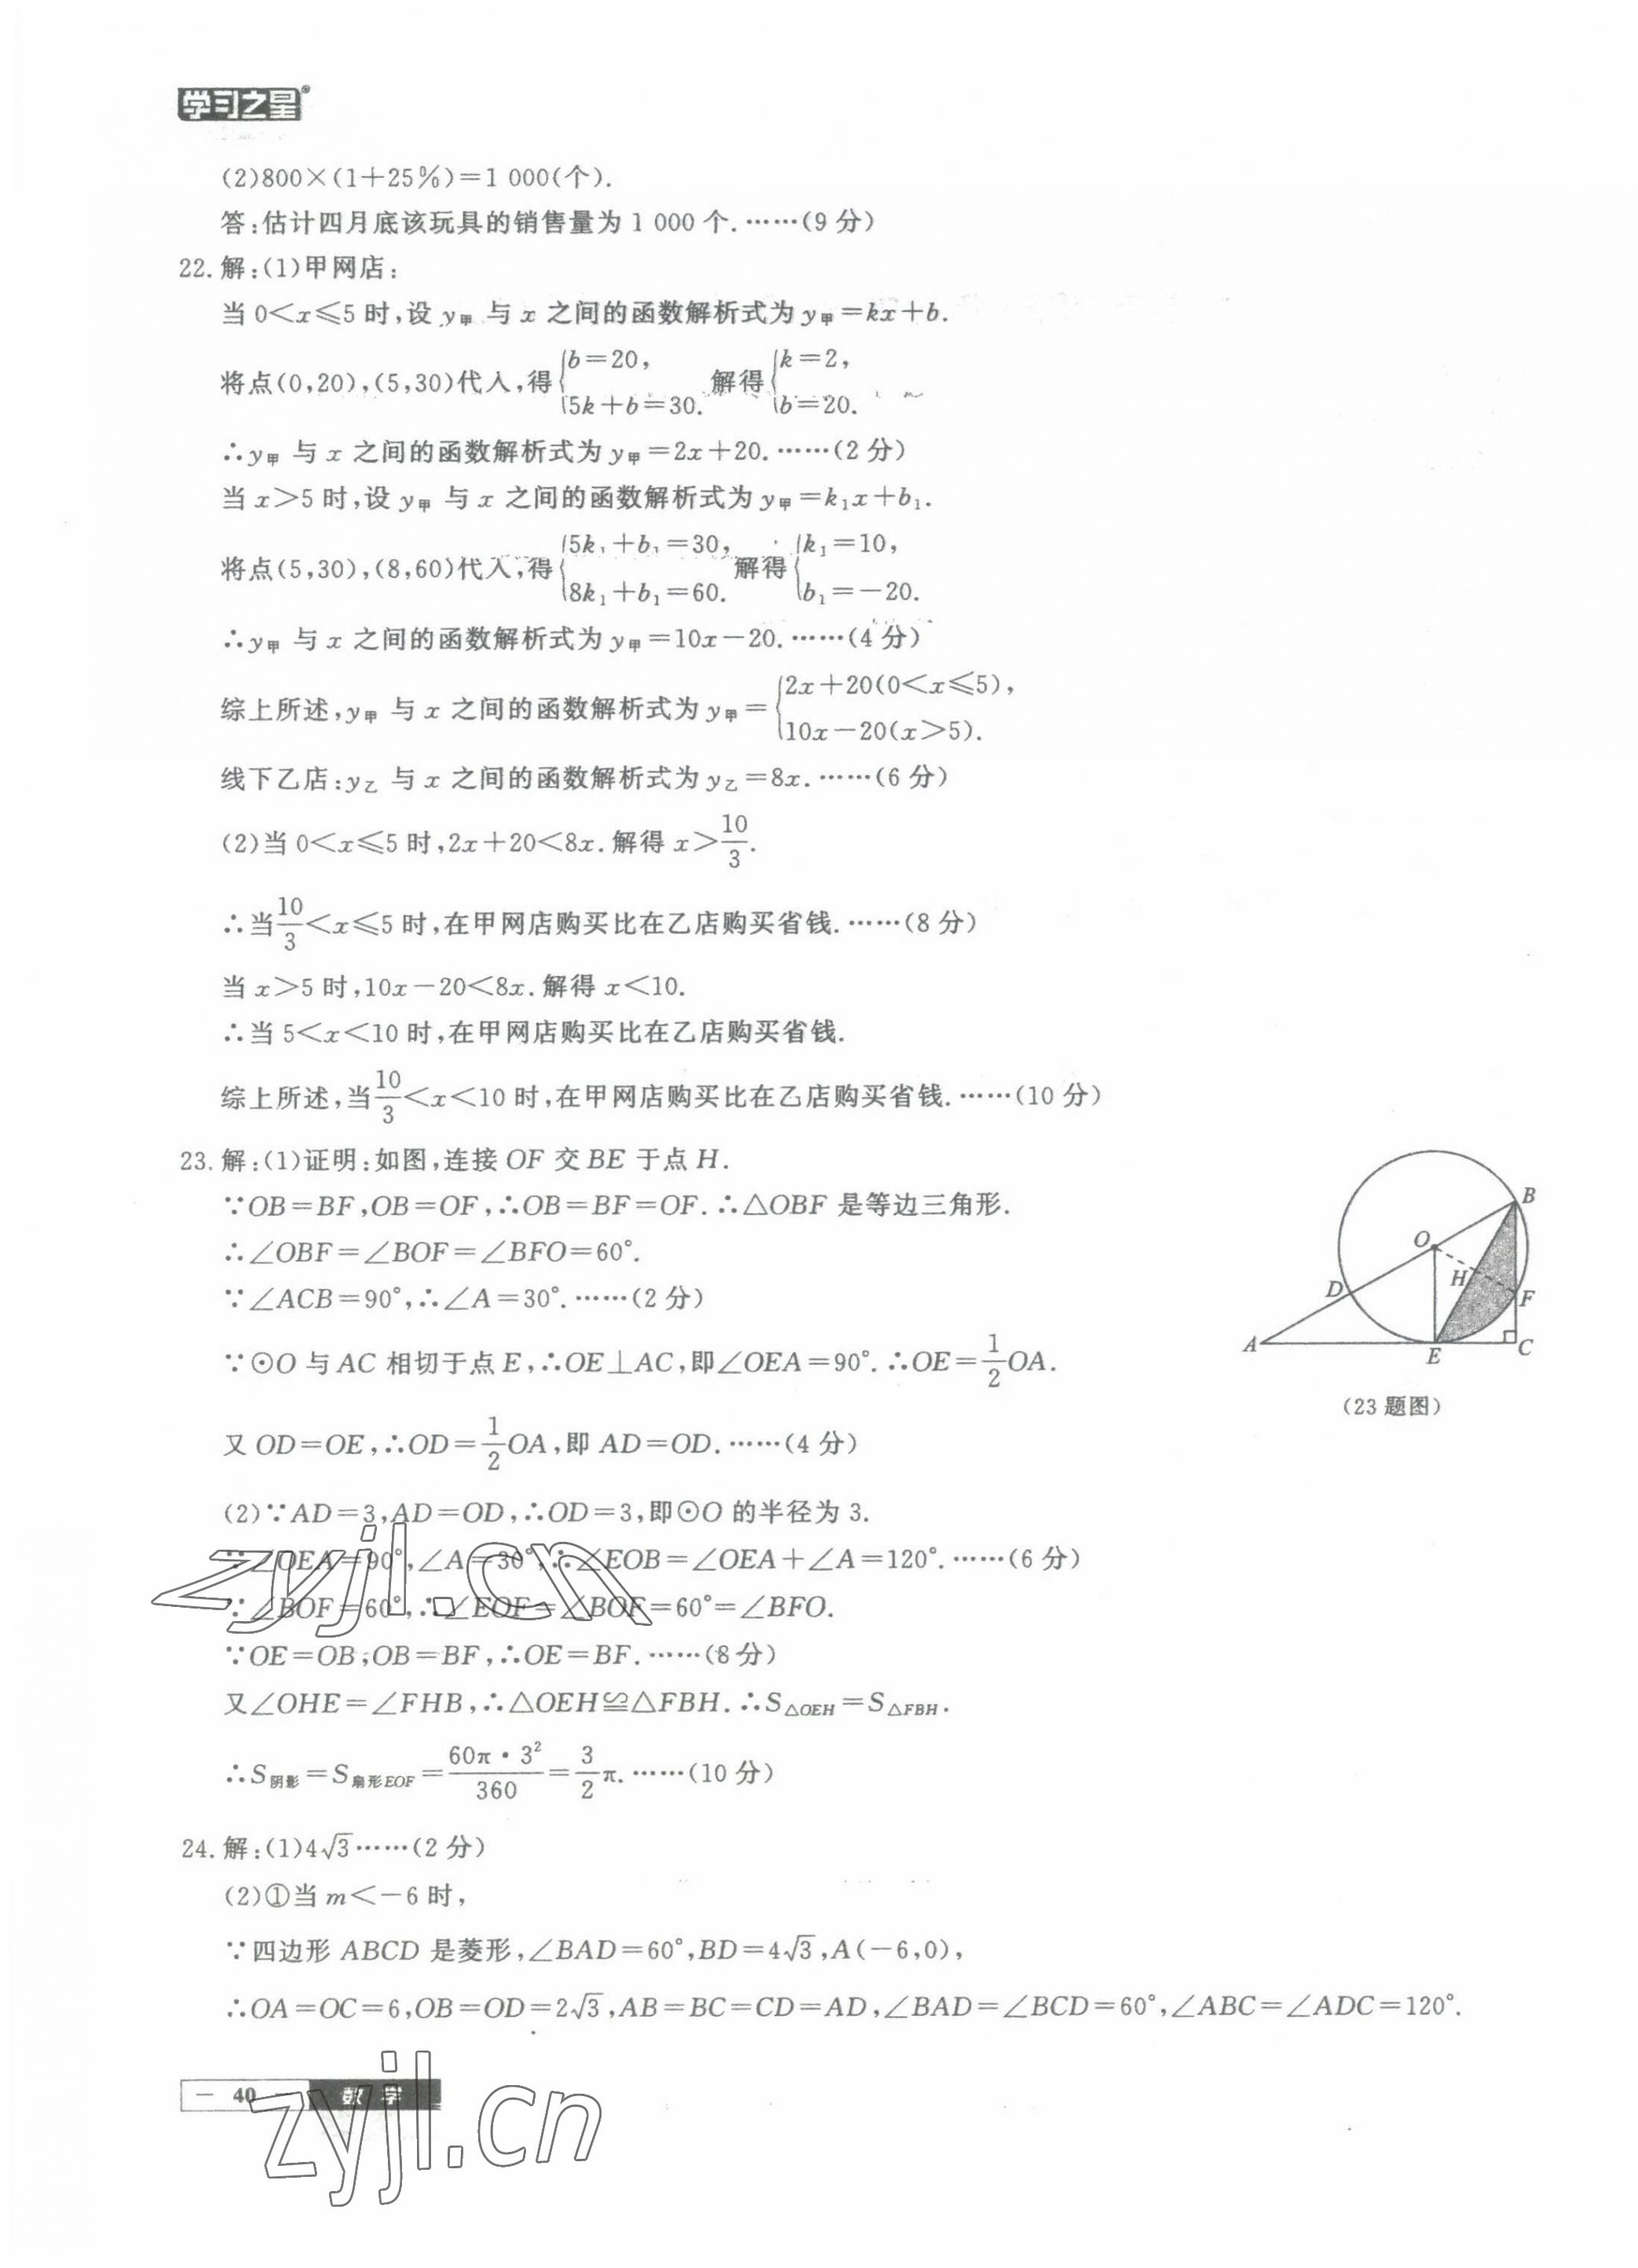 学习之星
(2)800×(1+25%)=1 000(个).
答:估计四月底该玩具的销售量为 1 000 个.……(9 分)
22. 解:(1)甲网店:
当 0<x≤5 时,设 y甲 与 x 之间的函数解析式为 y甲=kx+b.
将点(0,20),(5,30)代入,得{b=20, 5k+b=30. 解得{k=2, b=20.
∴y甲 与 x 之间的函数解析式为 y甲=2x+20.……(2 分)
当 x>5 时,设 y甲 与 x 之间的函数解析式为 y甲=k₁x+b₁.
将点(5,30),(8,60)代入,得{5k₁+b₁=30, 8k₁+b₁=60. 解得{k₁=10, b₁=-20.
∴y甲 与 x 之间的函数解析式为 y甲=10x-20.……(4 分)
综上所述,y甲 与 x 之间的函数解析式为 y甲={2x+20(0<x≤5), 10x-20(x>5).
线下乙店:y乙 与 x 之间的函数解析式为 y乙=8x.……(6 分)
(2)当 0<x≤5 时,2x+20<8x.解得 x>10/3.
∴当10/3<x≤5 时,在甲网店购买比在乙店购买省钱.……(8 分)
当 x>5 时,10x-20<8x.解得 x<10.
∴当 5<x<10 时,在甲网店购买比在乙店购买省钱.
综上所述,当10/3<x<10 时,在甲网店购买比在乙店购买省钱.……(10 分)
23. 解:(1)证明:如图,连接 OF 交 BE 于点 H.
∵OB=BF,OB=OF,∴OB=BF=OF.∴△OBF 是等边三角形.
∴∠OBF=∠BOF=∠BFO=60°.
∵∠ACB=90°,∴∠A=30°.……(2 分)
∵⊙O 与 AC 相切于点 E,∴OE⊥AC,即∠OEA=90°.∴OE=1/2OA.
又 OD=OE,∴OD=1/2OA,即 AD=OD.……(4 分)
B
O
H
D
F
A
E
C
(23 题图)
(2)∵AD=3,AD=OD,∴OD=3,即⊙O 的半径为 3.
∵∠OEA=90°,∠A=30°,∴∠EOB=∠OEA+∠A=120°.……(6 分)
∵∠BOF=60°,∴∠EOF=∠BOF=60°=∠BFO.
∵OE=OB,OB=BF,∴OE=BF.……(8 分)
又∠OHE=∠FHB,∴△OEH≌△FBH.∴S△OEH=S△FBH.
∴S阴影=S扇形EOF=60π·3²/360=3/2π.……(10 分)
zyjl.cn
24. 解:(1)4√3……(2 分)
(2)①当 m<-6 时,
∵四边形 ABCD 是菱形,∠BAD=60°,BD=4√3,A(-6,0),
∴OA=OC=6,OB=OD=2√3,AB=BC=CD=AD,∠BAD=∠BCD=60°,∠ABC=∠ADC=120°.
— 40 — 数 学
zyjl.cn